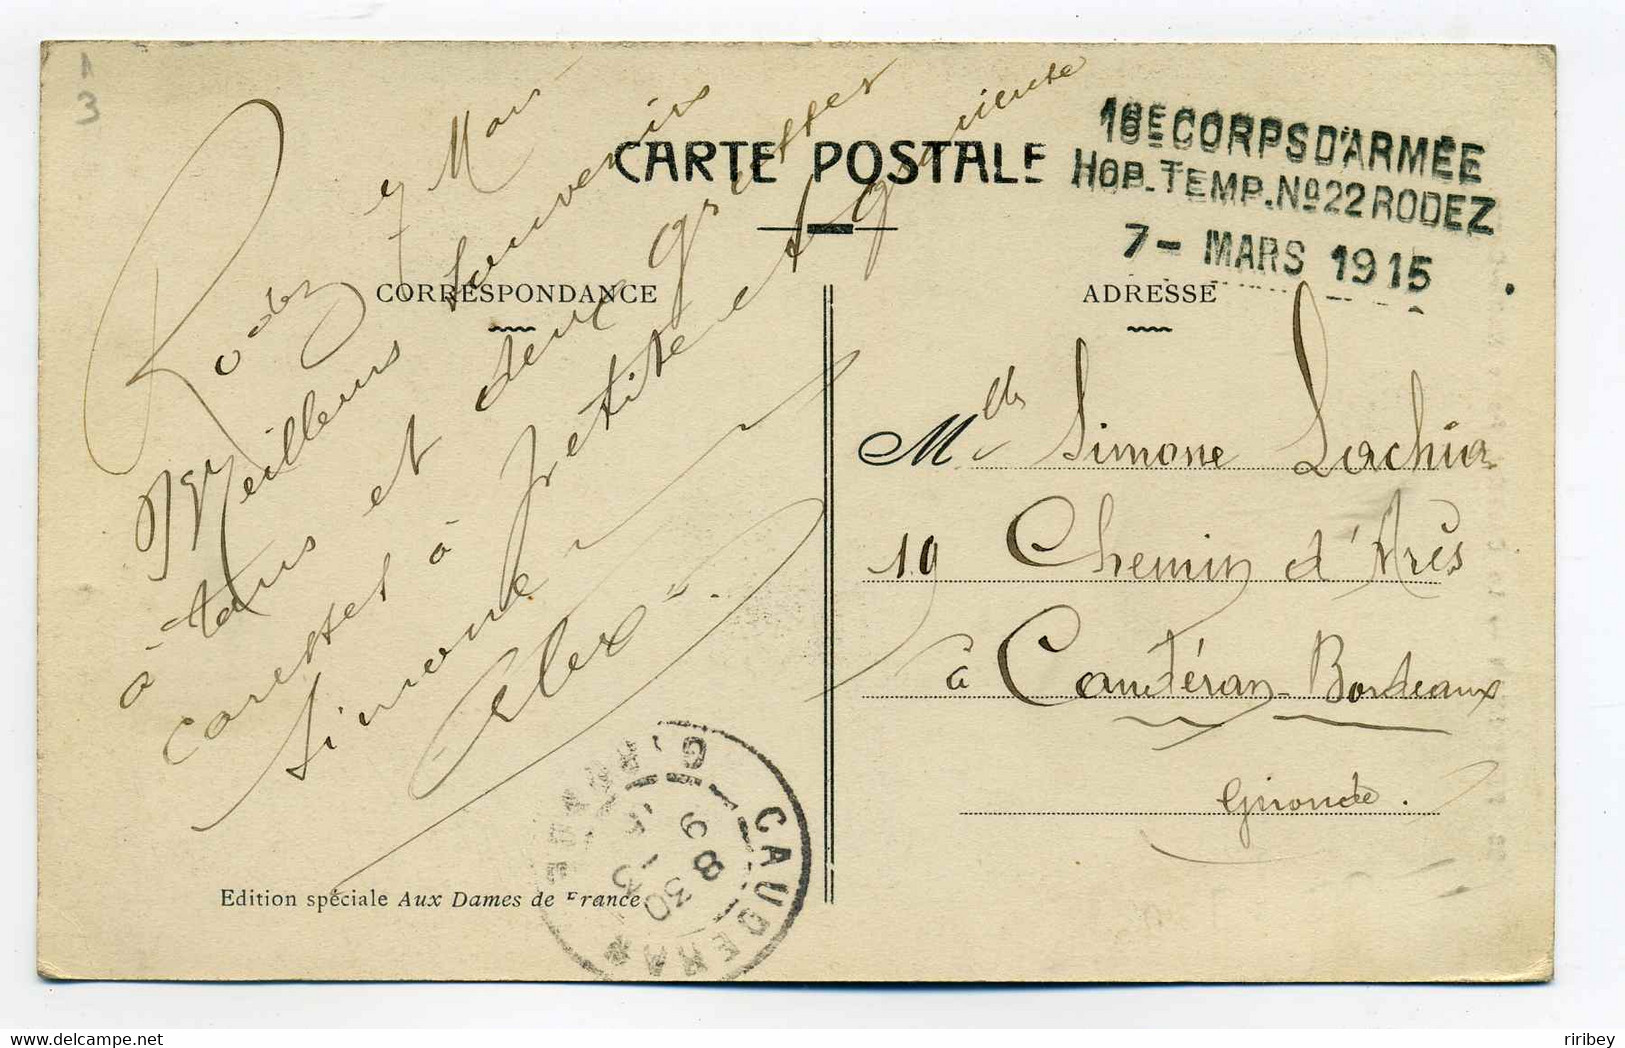 1
3
CARTE POSTALE
16E CORPS D'ARMÉE
HOP. TEMP. No 22 RODEZ
7 - MARS 1915
CORRESPONDANCE
Rodez 7 Mars
Meilleurs souvenirs
à tous et deux grosses
caresses à petite et
Simone
Alex
ADRESSE
Mlle Simone Lachia
19 Chemin d'Arès
à Caudéran-Bordeaux
Gironde.
CAUDERAN
9 - 3
8 30
Edition spéciale Aux Dames de France
ribey